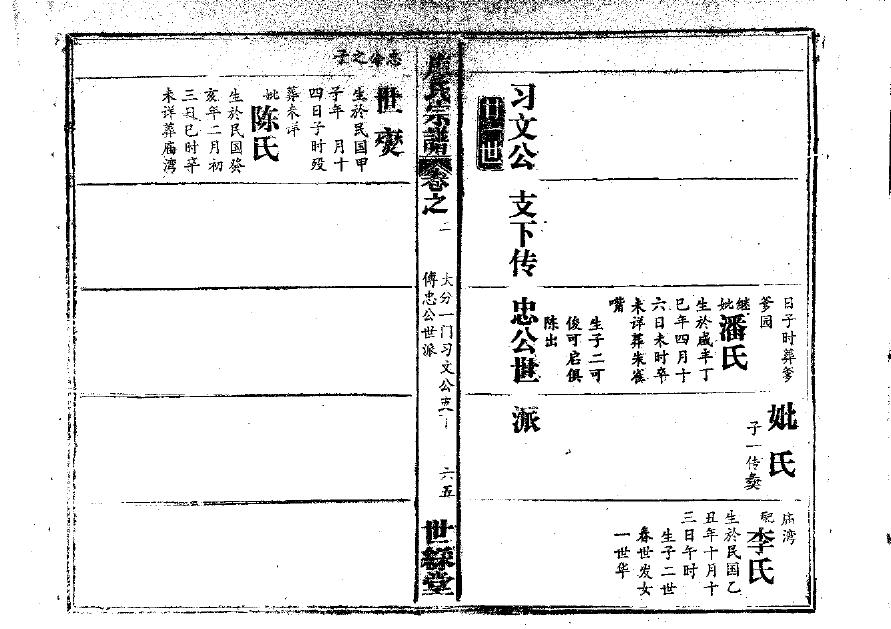 日子时葬爹
爹园
继妣潘氏
生於咸丰丁
巳年四月十
六日未时卒
未详葬朱雀
嘴
生子二可
俊可启俱
陈出
妣氏
子一传
庙湾
配李氏
生於民国乙
丑年十月十
三日午时
生子二世
春世发女
一世华
习文公支下传忠公世派
氏宗谱卷之二
大分一门习文公支下
傅忠公世派
六五
世綵堂
忠命之子
世燮
生於民国甲
子年 月十
四日子时殁
葬未详
妣陈氏
生於民国癸
亥年二月初
三日巳时卒
未详葬庙湾